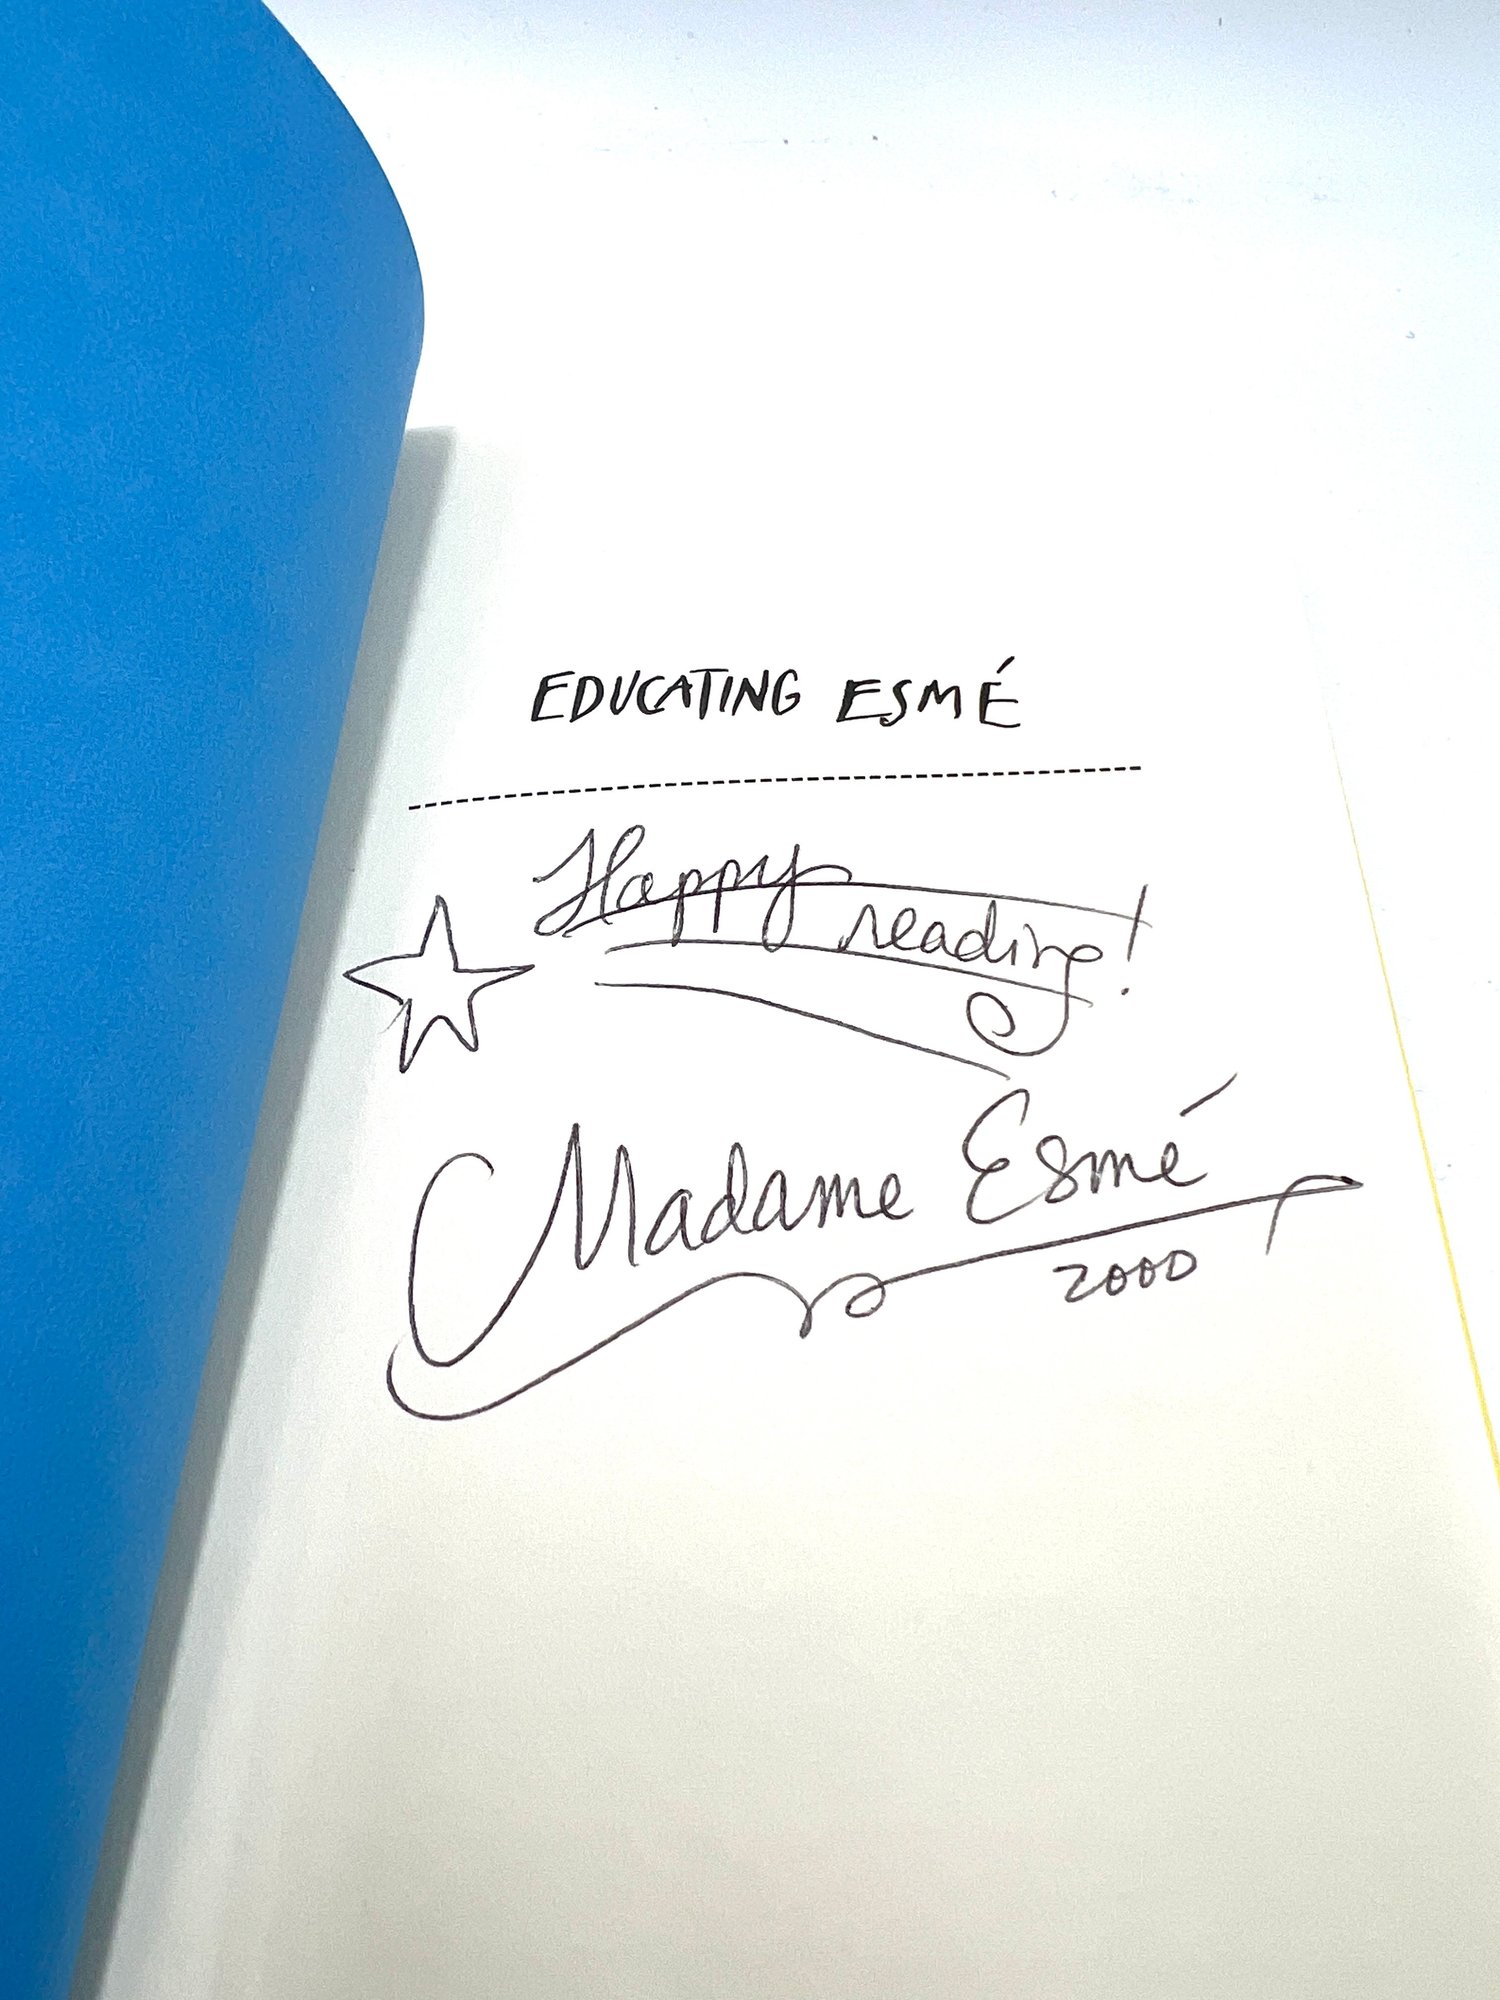 EDUCATING ESMÉ
Happy reading!
Madame Esmé
2000